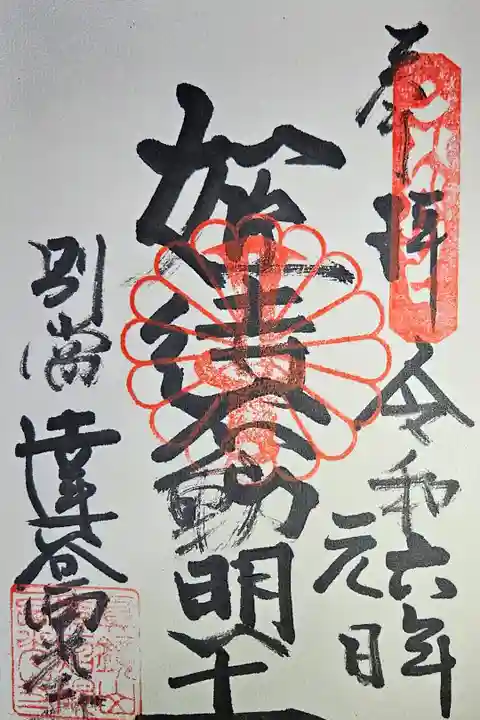 奉拝
令和六年
元日
姫待不動明王
別當達谷西光寺